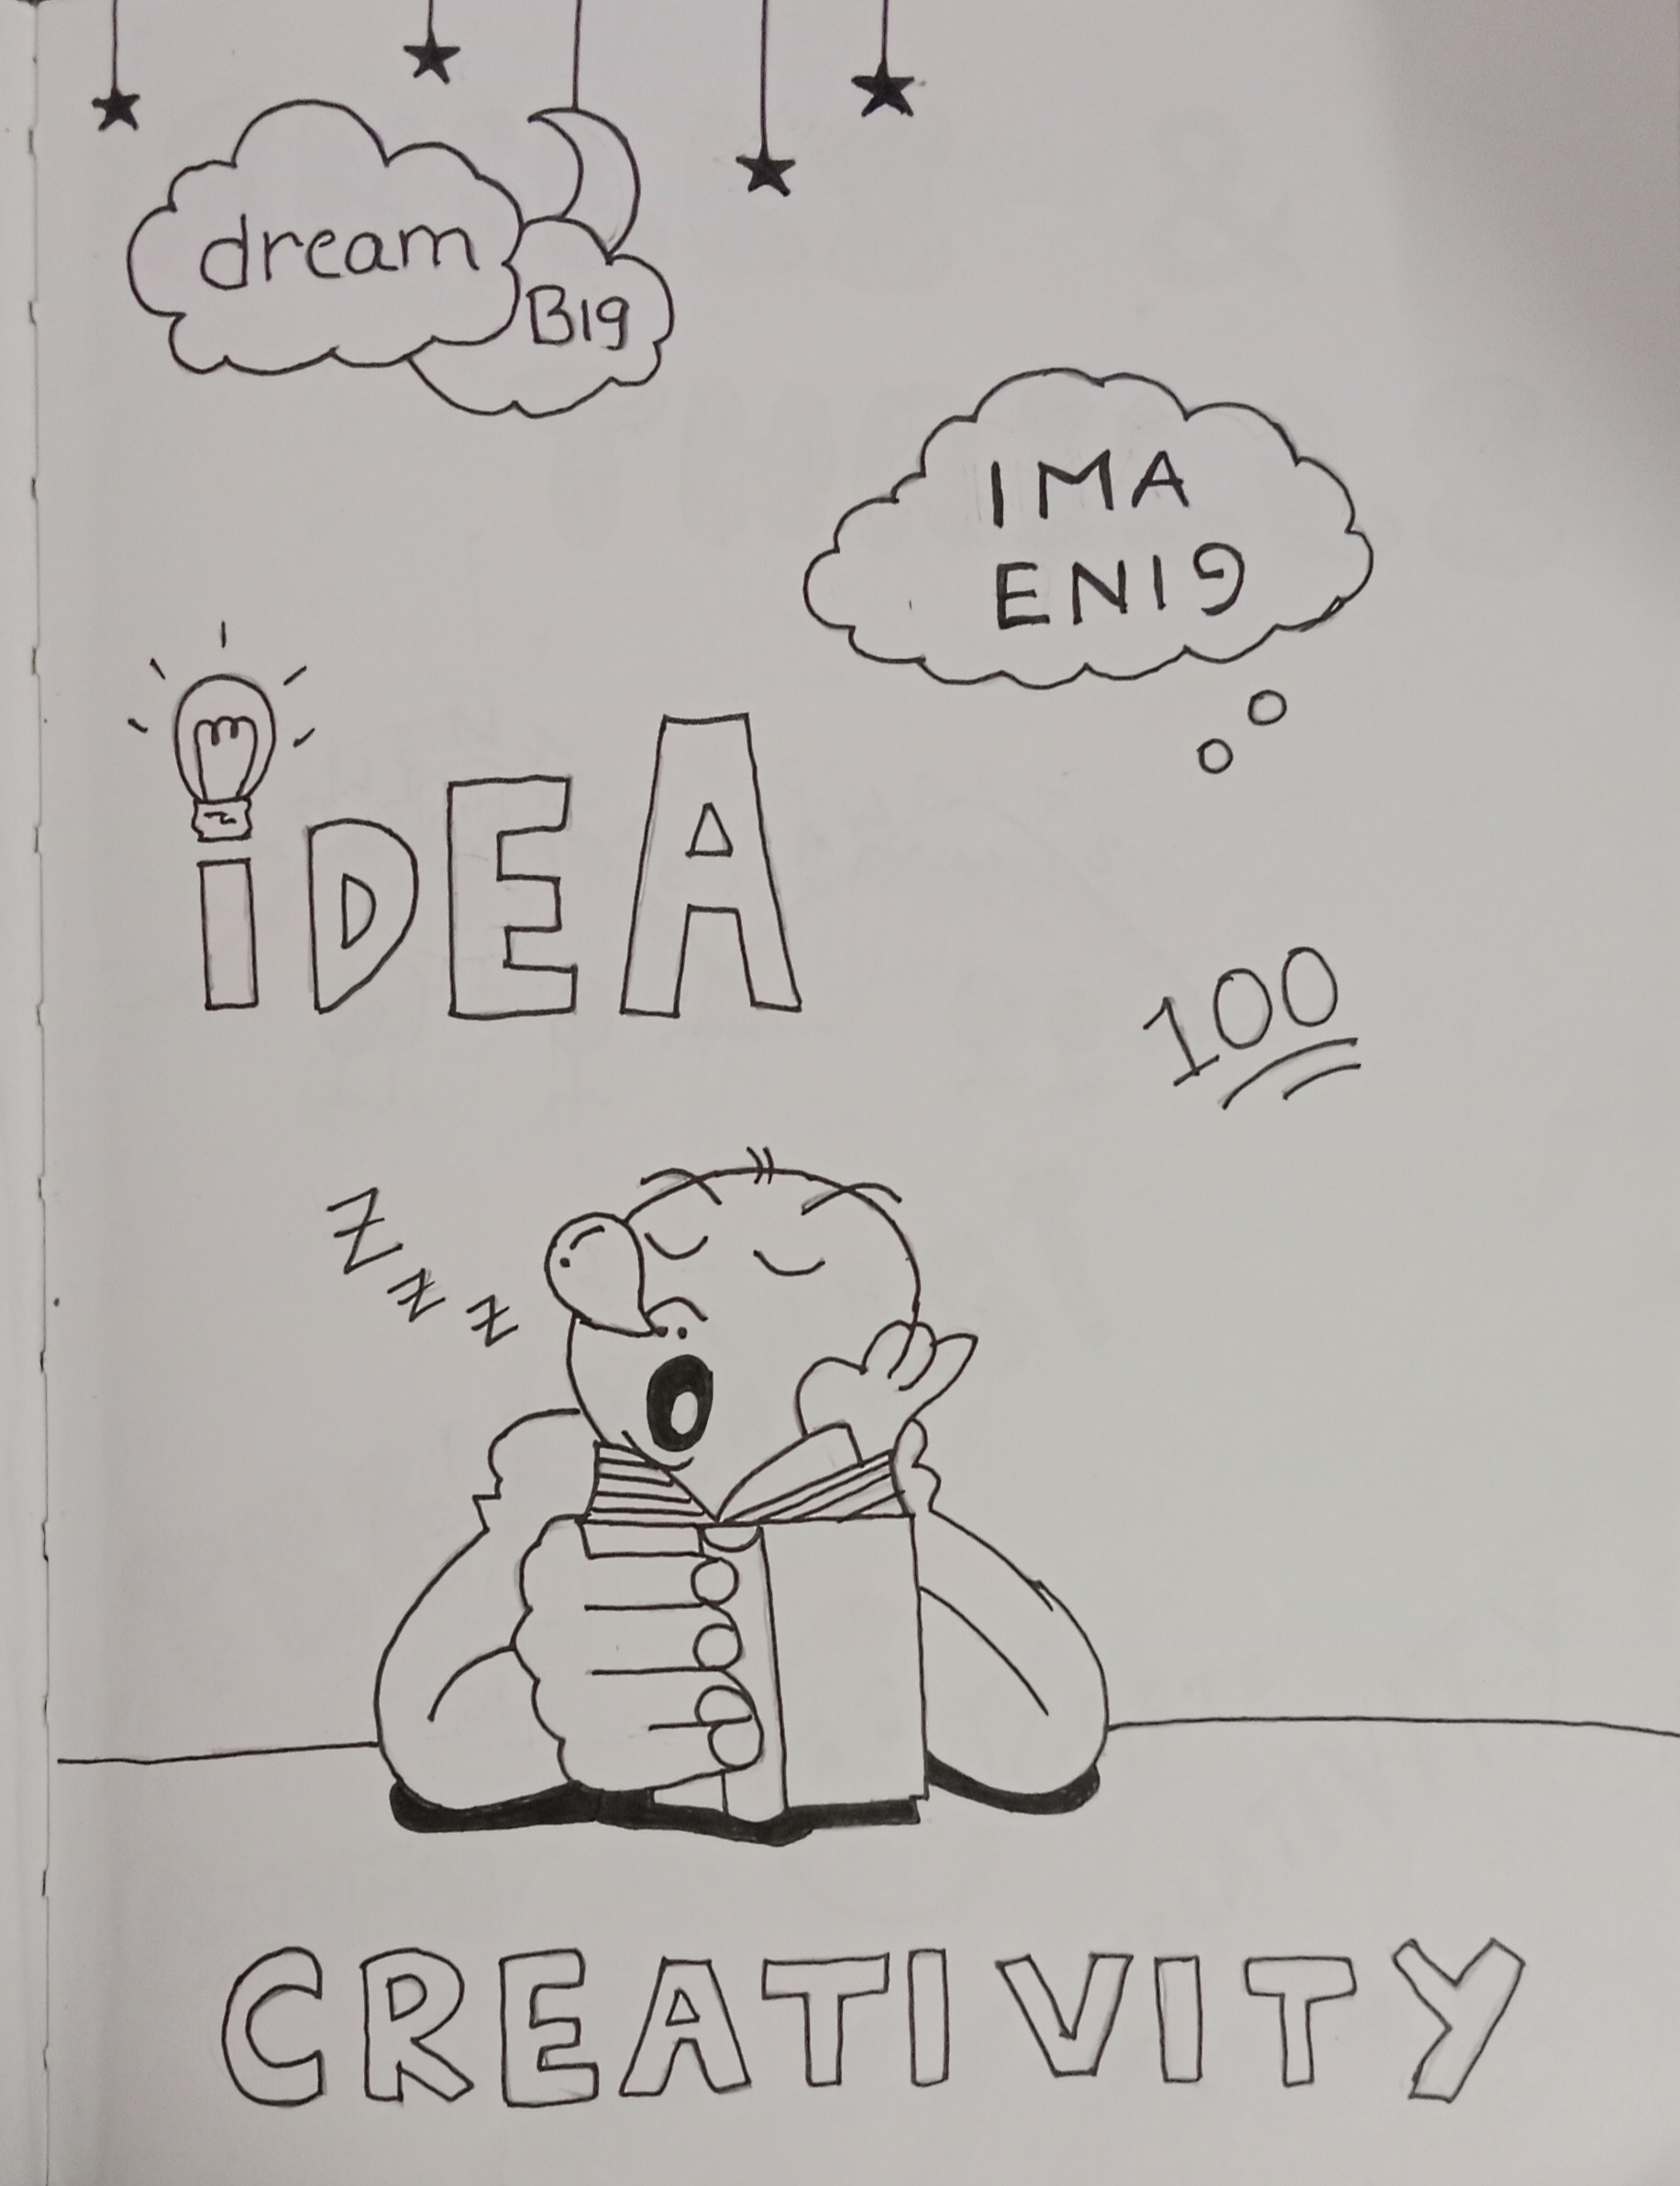 dream
BIg
IMA
ENIG
iDEA
100
Z z z
CREATIVITY